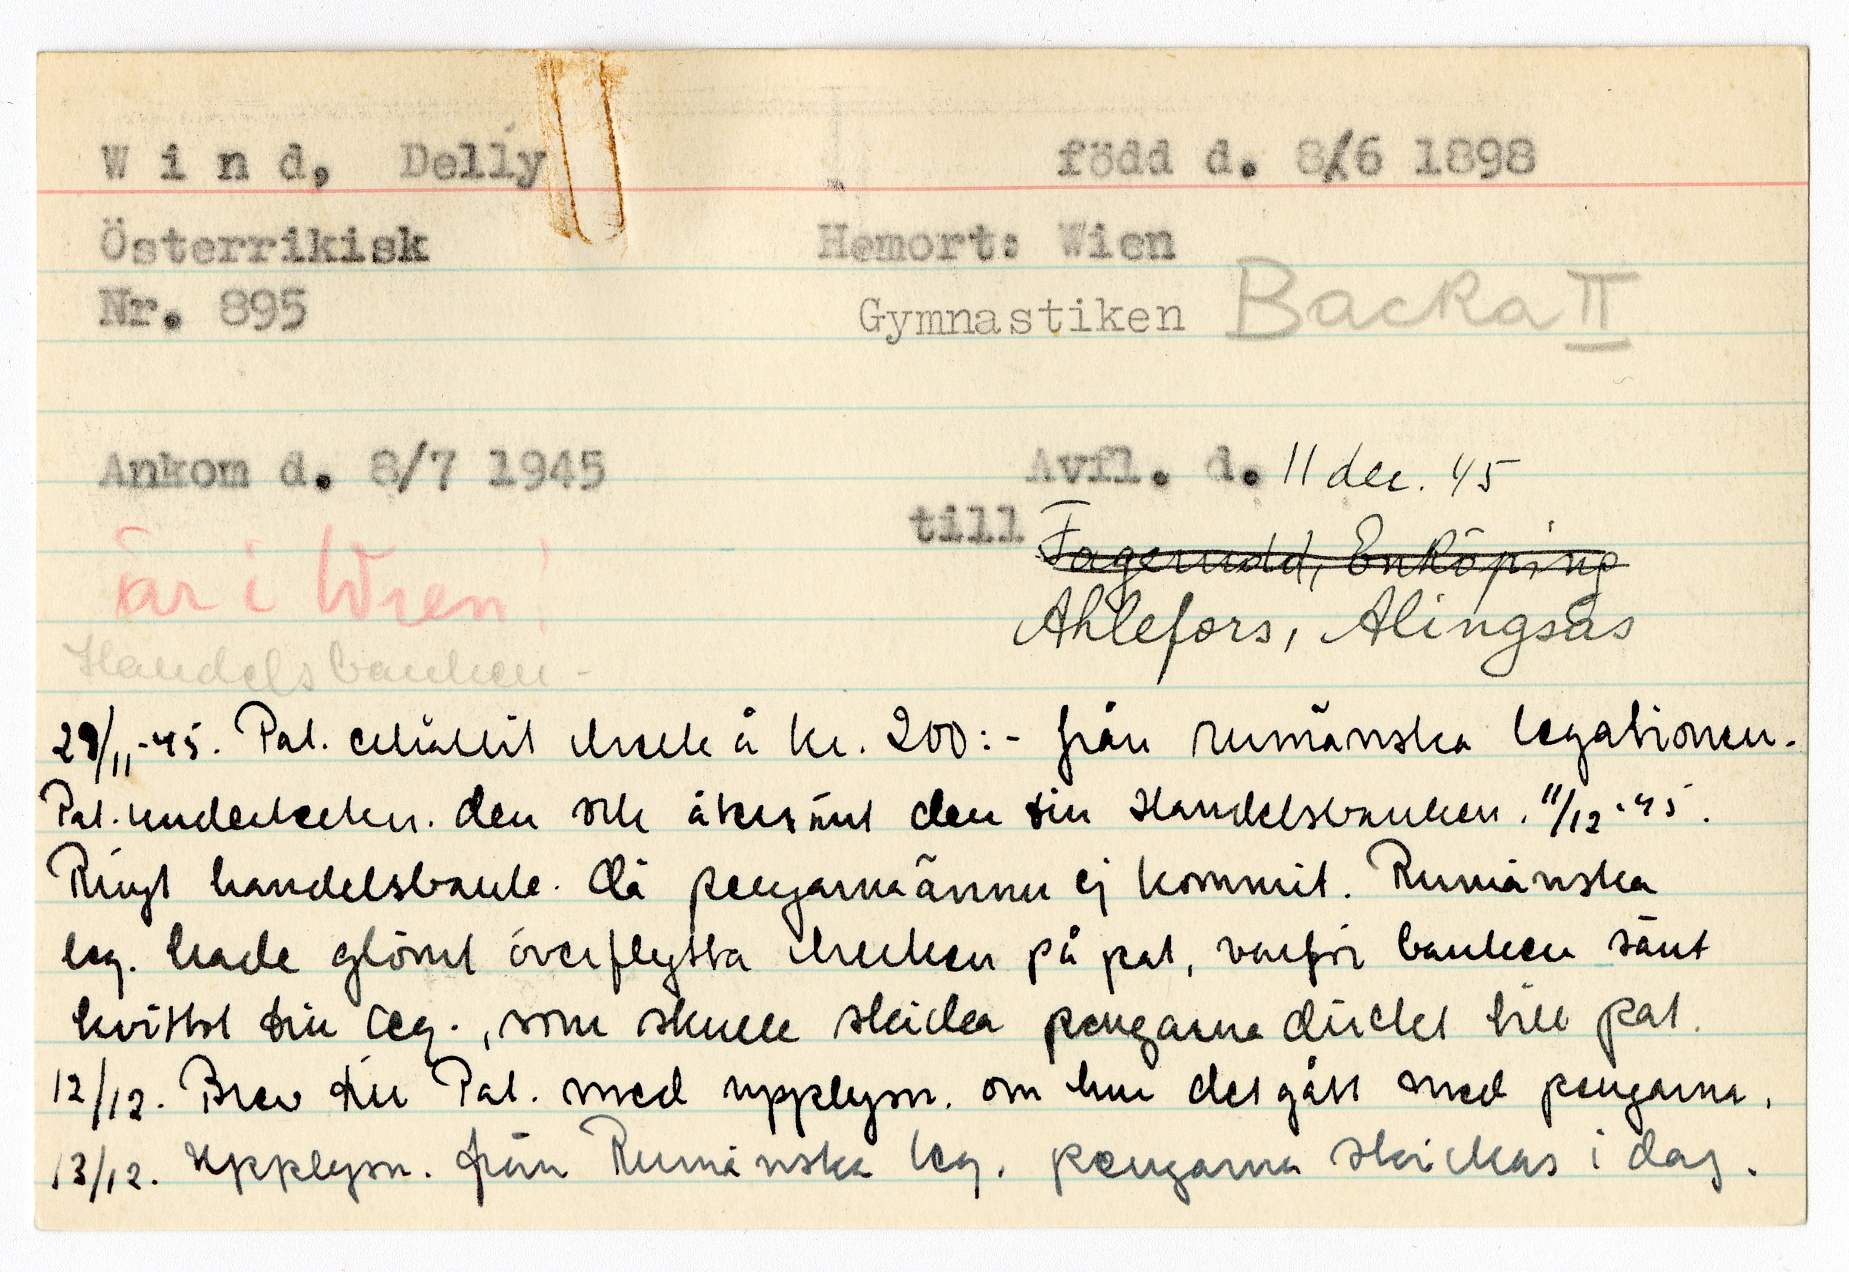 Wind, Delly född d. 8/6 1898
Österrikisk Hemort: Wien
Nr. 895 Gymnastiken Backa II
Ankom d. 8/7 1945 Avfl. d. 11 dec. 45
till Fagerudd, Enköping
är i Wien! Ahlefors, Alingsås
Handelsbanken -
29/11-45. Pat. erhållit check å kr. 200:- från rumänska legationen.
Pat. undertecken. den och återsänt den till Handelsbanken. 11/12-45.
Ringt handelsbank. då pengarna ännu ej kommit. Rumänska
leg. hade glömt överflytta checken på pat, varför banken sänt
kvittot till leg., som skulle skicka pengarna direkt till pat.
12/12. Brev till Pat. med upplysn. om hur det gått med pengarna.
13/12. Upplysn. från Rumänska leg. pengarna skickas i dag.